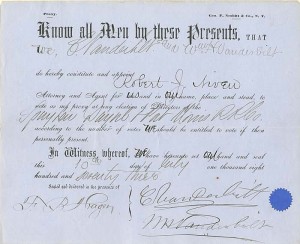 PROXY. Geo. F. Nesbitt & Co., N. Y.
Know all Men by these Presents, THAT
We, C Vanderbilt and Wm H Vanderbilt
do hereby constitute and appoint
Robert J. Niven
Attorney and Agent for us and in our name, place and stead, to
vote as proxy at any election of Directors of the
according to the number of votes We should be entitled to vote if then
personally present.
In Witness whereof, We have hereunto set our hand and seal
this 10th day of July one thousand
eight hundred and seventy three
Sealed and delivered in the presence of
C Vanderbilt
Wm H Vanderbilt